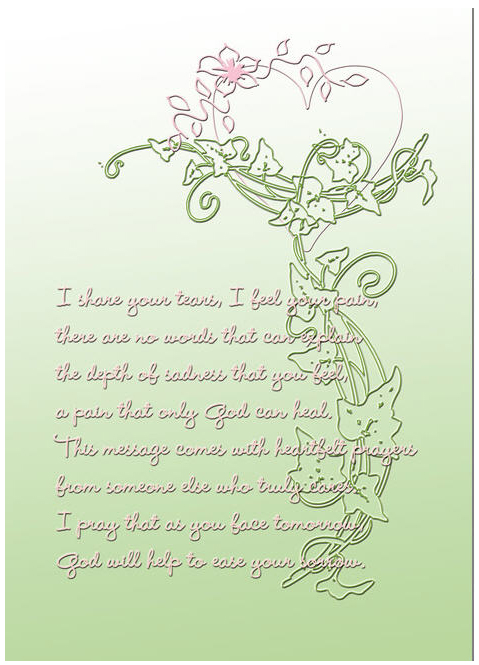 I share your tears, I feel your pain,
there are no words that can explain
the depth of sadness that you feel,
a pain that only God can heal.
This message comes with heartfelt prayers
from someone else who truly cares.
I pray that as you face tomorrow,
God will help to ease your sorrow.